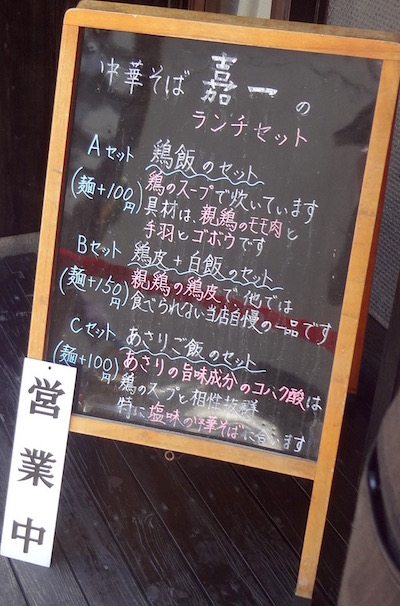 中華そば 嘉一の
ランチセット
Aセット 鶏飯のセット
(麺+100円)
鶏のスープで炊いています
具材は、親鶏のモモ肉と
手羽とゴボウです
Bセット 鶏皮+白飯のセット
(麺+150円)
親鶏の鶏皮で、他では
食べられない当店自慢の一品です
Cセット あさりご飯のセット
(麺+100円)
あさりの旨味成分のコハク酸は
鶏のスープと相性抜群
特に塩味の中華そばに合います
営業中